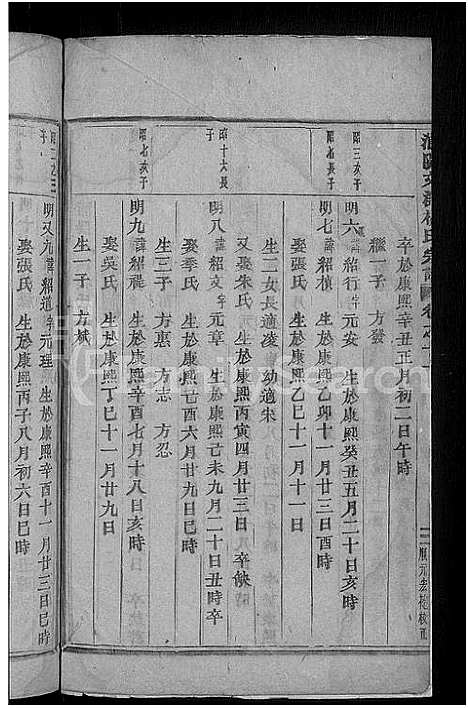 卒於康熙辛丑正月初二日午時
繼一子 方發
昭三次子
明六 諱紹行 字元安 生於康熙癸丑五月二十日亥時
昭七長子
明七 諱紹楨 生於康熙乙卯十一月廿三日酉時
娶張氏 生於康熙乙巳十一月十一日
生二女長適凌 幼適宋
又娶朱氏 生於康熙丙寅四月廿三日 卒缺
昭十六長子
明八 諱紹文 字元章 生於康熙己未九月二十日丑時卒
娶季氏 生於康熙己酉六月廿九日巳時
生三子 方惠 方志 方忍
昭七次子
明九 諱紹禩 生於康熙辛酉七月十八日亥時
娶吳氏 生於康熙丁巳十一月廿九日
生一子 方斌
明又九 諱紹道 字元理 生於康熙辛酉十一月廿三日巳時
娶張氏 生於康熙丙子八月初六日巳時